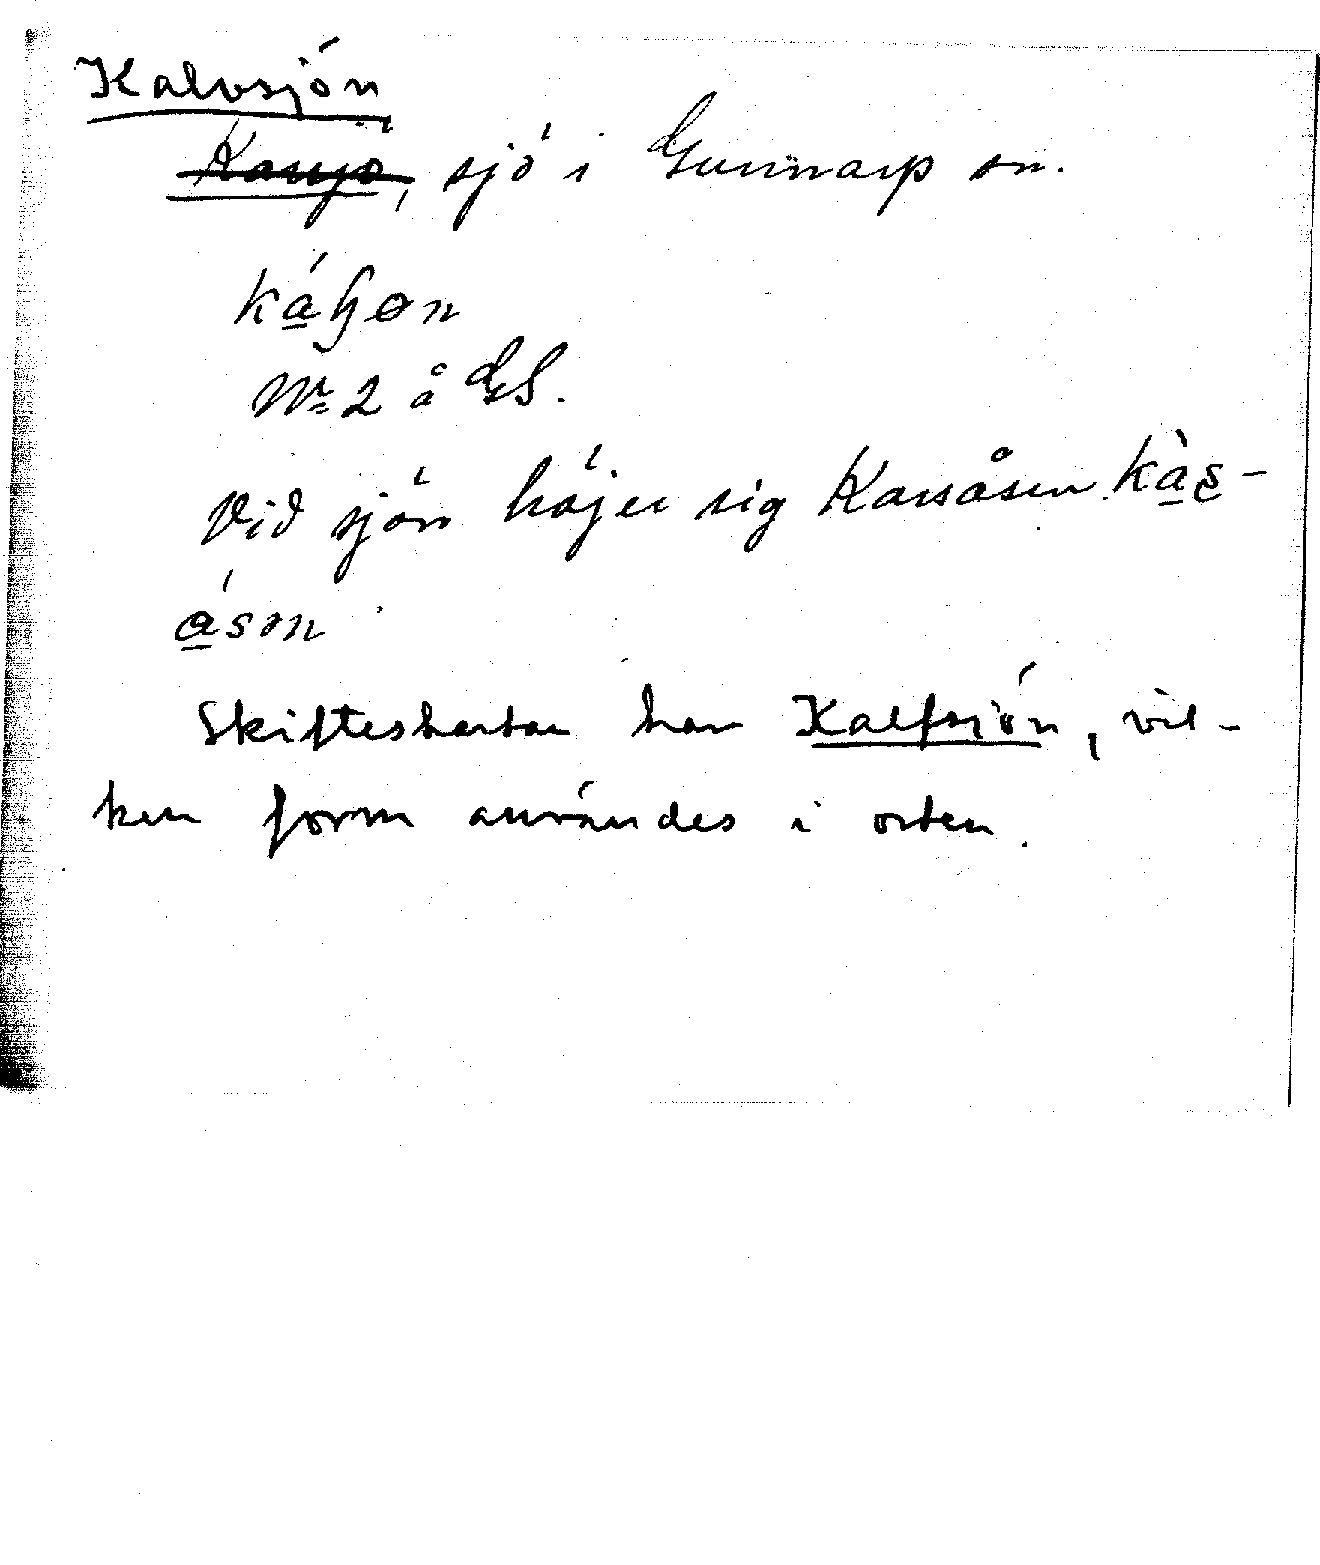 Kalvsjön
Karsjö, sjö i Gunnarp sn.
káɧon
Nr 2 å GS.
Vid sjön höjer sig Karsåsen kàs-
áson
Skifteskartan har Kalfsjön, vil-
ken form användes i orten.